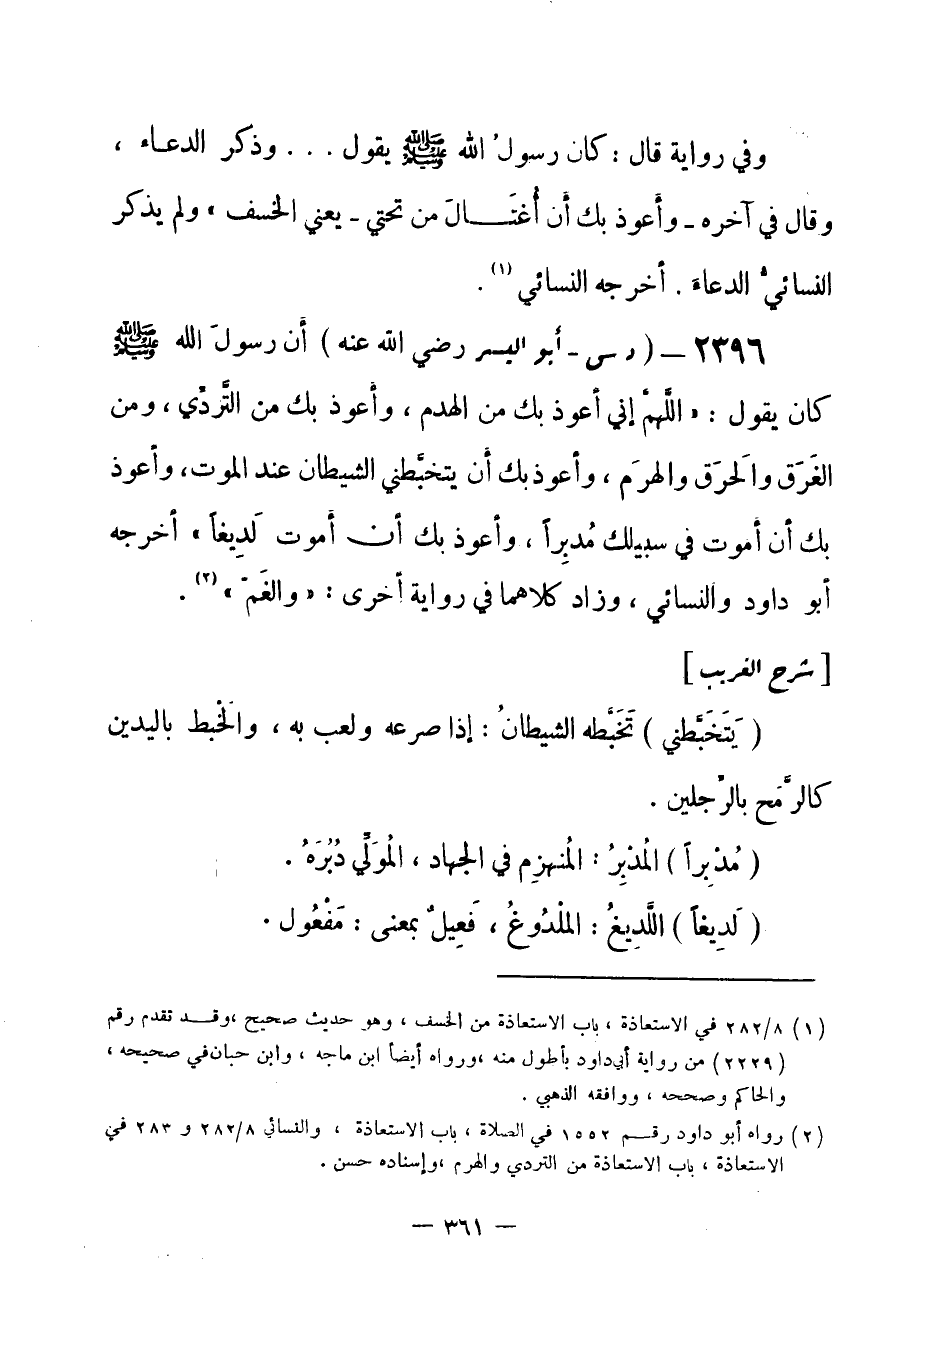 وفي رواية قال : كان رسولُ الله ﷺ يقول . . . وذكر الدعاء ،
وقال في آخره ـ وأعوذ بك أن أُغتَـــالَ من تحتي ـ يعني الخسف » ولم يذكر
النسائيُّ الدعاءَ . أخرجه النسائي (١) .
٢٣٩٦ ـ ( د س ـ أبو اليسر رضي الله عنه ) أن رسولَ الله ﷺ
كان يقول : « اللَّهمَّ إني أعوذ بك من الهدم ، وأعوذ بك من التَّردِّي ، ومن
الغَرَق والحَرَق والهرَم ، وأعوذ بك أن يتخبَّطني الشيطان عند الموت ، وأعوذ
بك أن أموت في سبيلك مُدبِراً ، وأعوذ بك أن أموت لَديغاً » أخرجه
أبو داود والنسائي ، وزاد كلاهما في رواية أخرى : « والغَمّ » (٢) .
[ شرح الغريب ]
( يَتَخَبَّطني ) تَخَبَّطه الشيطانُ : إذا صرعه ولعب به ، والخَبْط باليدين
كالرَّمْح بالرِّجلين .
( مُدْبِراً ) المُدْبِرُ : المُنهزِم في الجهاد ، المُوَلِّي دُبُرَهُ .
( لَديغاً ) اللَّدِيغُ : المَلْدُوغُ ، فَعِيلٌ بمعنى : مَفْعُول .
(١) ٢٨٢/٨ في الاستعاذة ، باب الاستعاذة من الخسف ، وهو حديث صحيح ، وقـــد تقدم رقم
(٢٢٢٩) من رواية أبي داود بأطول منه ، ورواه أيضاً ابن ماجه ، وابن حبان في صحيحه ،
والحاكم وصححه ، ووافقه الذهبي .
(٢) رواه أبو داود رقـــم ١٥٥٢ في الصلاة ، باب الاستعاذة ، والنسائي ٢٨٢/٨ و ٢٨٣ في
الاستعاذة ، باب الاستعاذة من التردي والهرم ، وإسناده حسن .
— ٣٦١ —